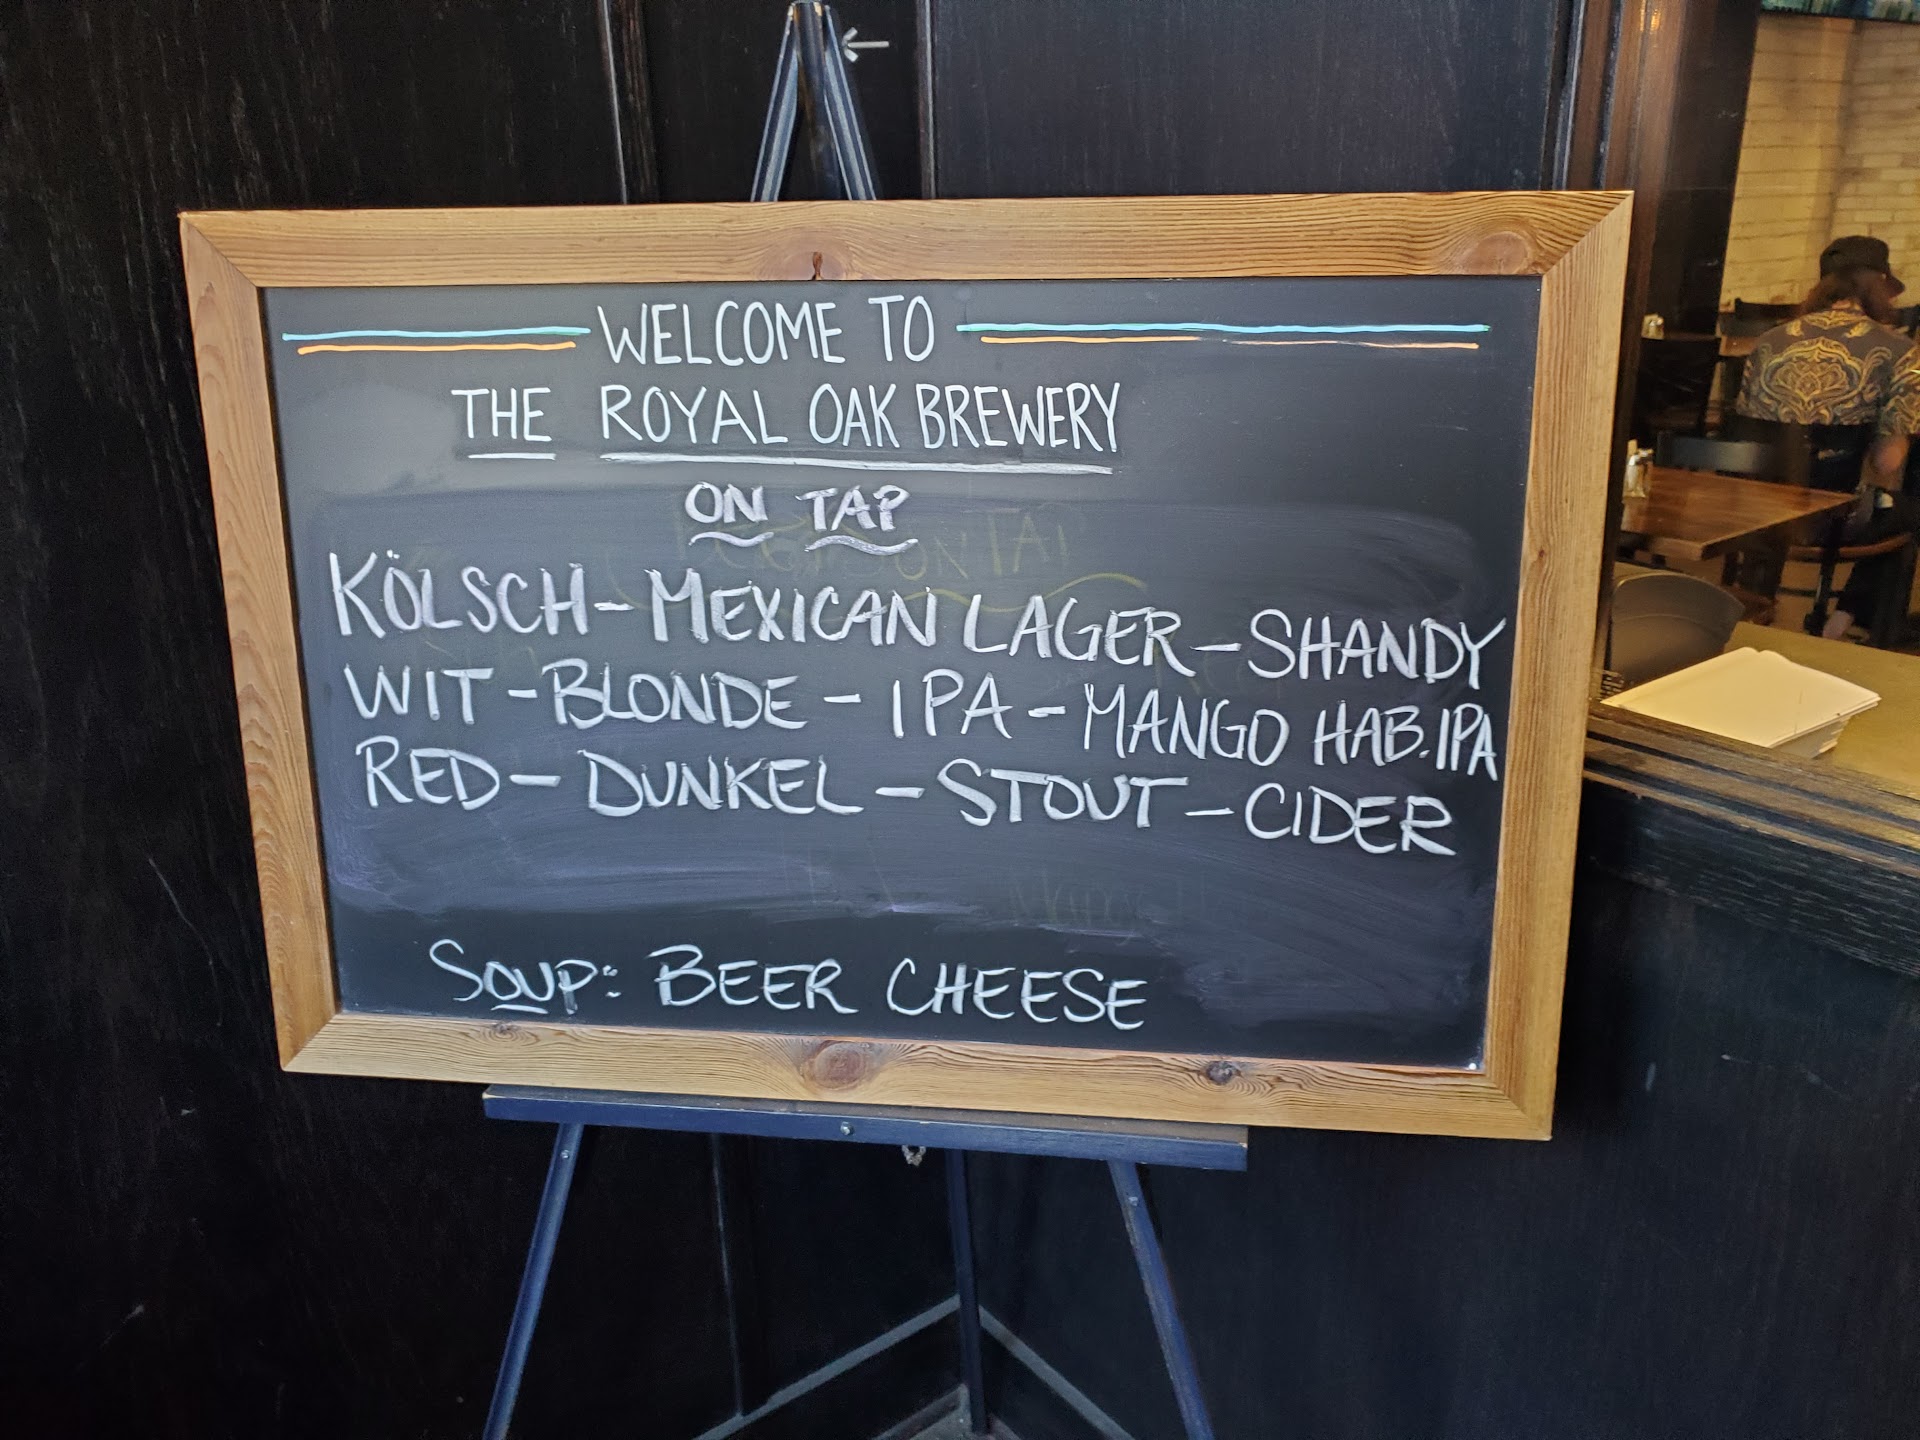 WELCOME TO
THE ROYAL OAK BREWERY
ON TAP
KÖLSCH - MEXICAN LAGER - SHANDY
WIT - BLONDE - IPA - MANGO HAB. IPA
RED - DUNKEL - STOUT - CIDER
SOUP: BEER CHEESE